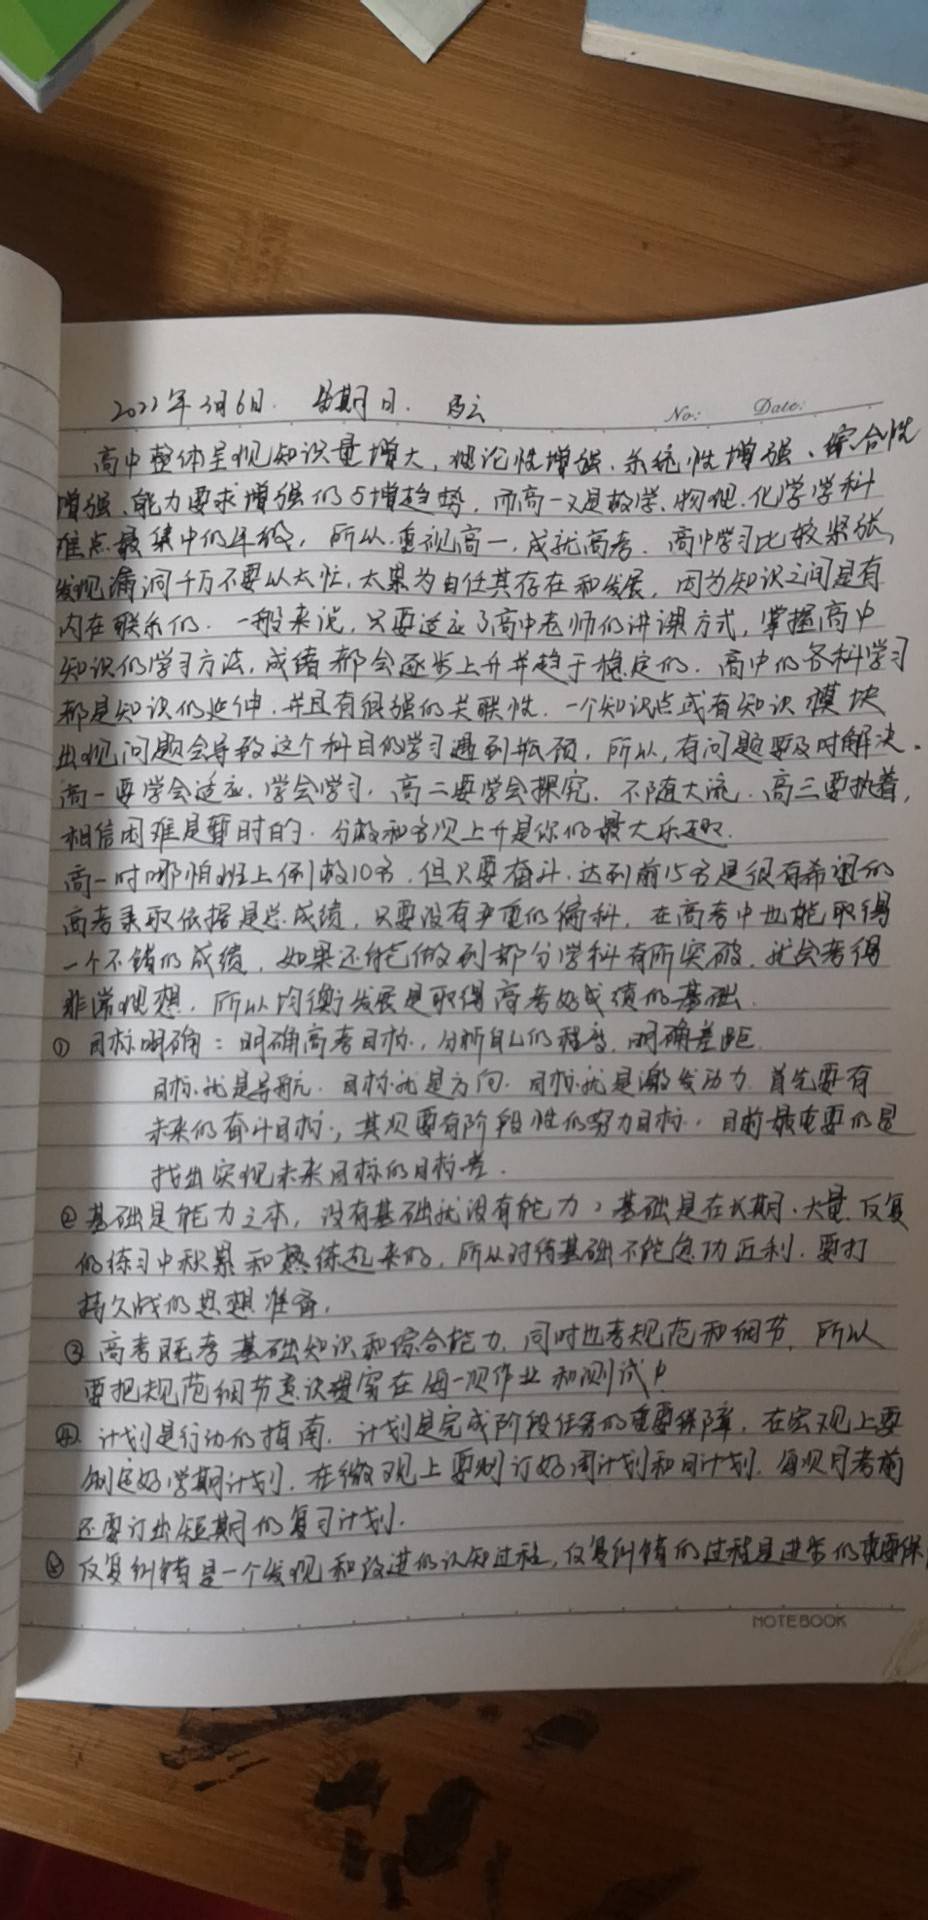 2022年3月6日. 星期日.
No: Date:
高中整体呈现知识量增大, 理论性增强、系统性增强、综合性
增强、能力要求增强的5增趋势, 而高一又是数学、物理、化学学科
难点最集中的年级, 所以, 重视高一, 成就高考. 高中学习比较紧张,
发现漏洞千万不要以太忙, 太累为自任其存在和发展, 因为知识之间是有
内在联系的. 一般来说, 只要适应了高中老师的讲课方式, 掌握高中
知识的学习方法, 成绩都会逐步上升并趋于稳定的. 高中的各科学习
都是知识的延伸, 并且有很强的关联性. 一个知识点或有知识模块
出现问题会导致这个科目的学习遇到瓶颈, 所以, 有问题要及时解决.
高一要学会适应, 学会学习, 高二要学会探究, 不随大流, 高三要执着,
相信困难是暂时的. 分数和名次上升是你的最大乐趣.
高一时哪怕班上倒数10名, 但只要奋斗, 达到前15名是很有希望的
高考录取依据是总成绩, 只要没有严重的偏科, 在高考中也能取得
一个不错的成绩, 如果还能做到部分学科有所突破, 就会考得
非常理想, 所以均衡发展是取得高考好成绩的基础.
① 目标明确: 明确高考目标, 分析自己的程度, 明确差距
目标就是导航. 目标就是方向. 目标就是激发动力 首先要有
未来的奋斗目标, 其次要有阶段性的努力目标. 目前最重要的是
找出实现未来目标的目标差.
② 基础是能力之本, 没有基础就没有能力, 基础是在长期、大量、反复
的练习中积累和熟练起来的, 所以对待基础不能急功近利, 要打
持久战的思想准备.
③ 高考既考基础知识和综合能力, 同时也考规范和细节, 所以
要把规范细节意识提实在每一次作业和测试中
④ 计划是行动的指南. 计划是完成阶段任务的重要保障, 在宏观上要
制定好学期计划, 在微观上要制订好周计划和日计划, 每次月考前
还要订出短期的复习计划.
⑤ 反复纠错是一个发现和改进的认知过程, 反复纠错的过程是进步的重要保
NOTEBOOK